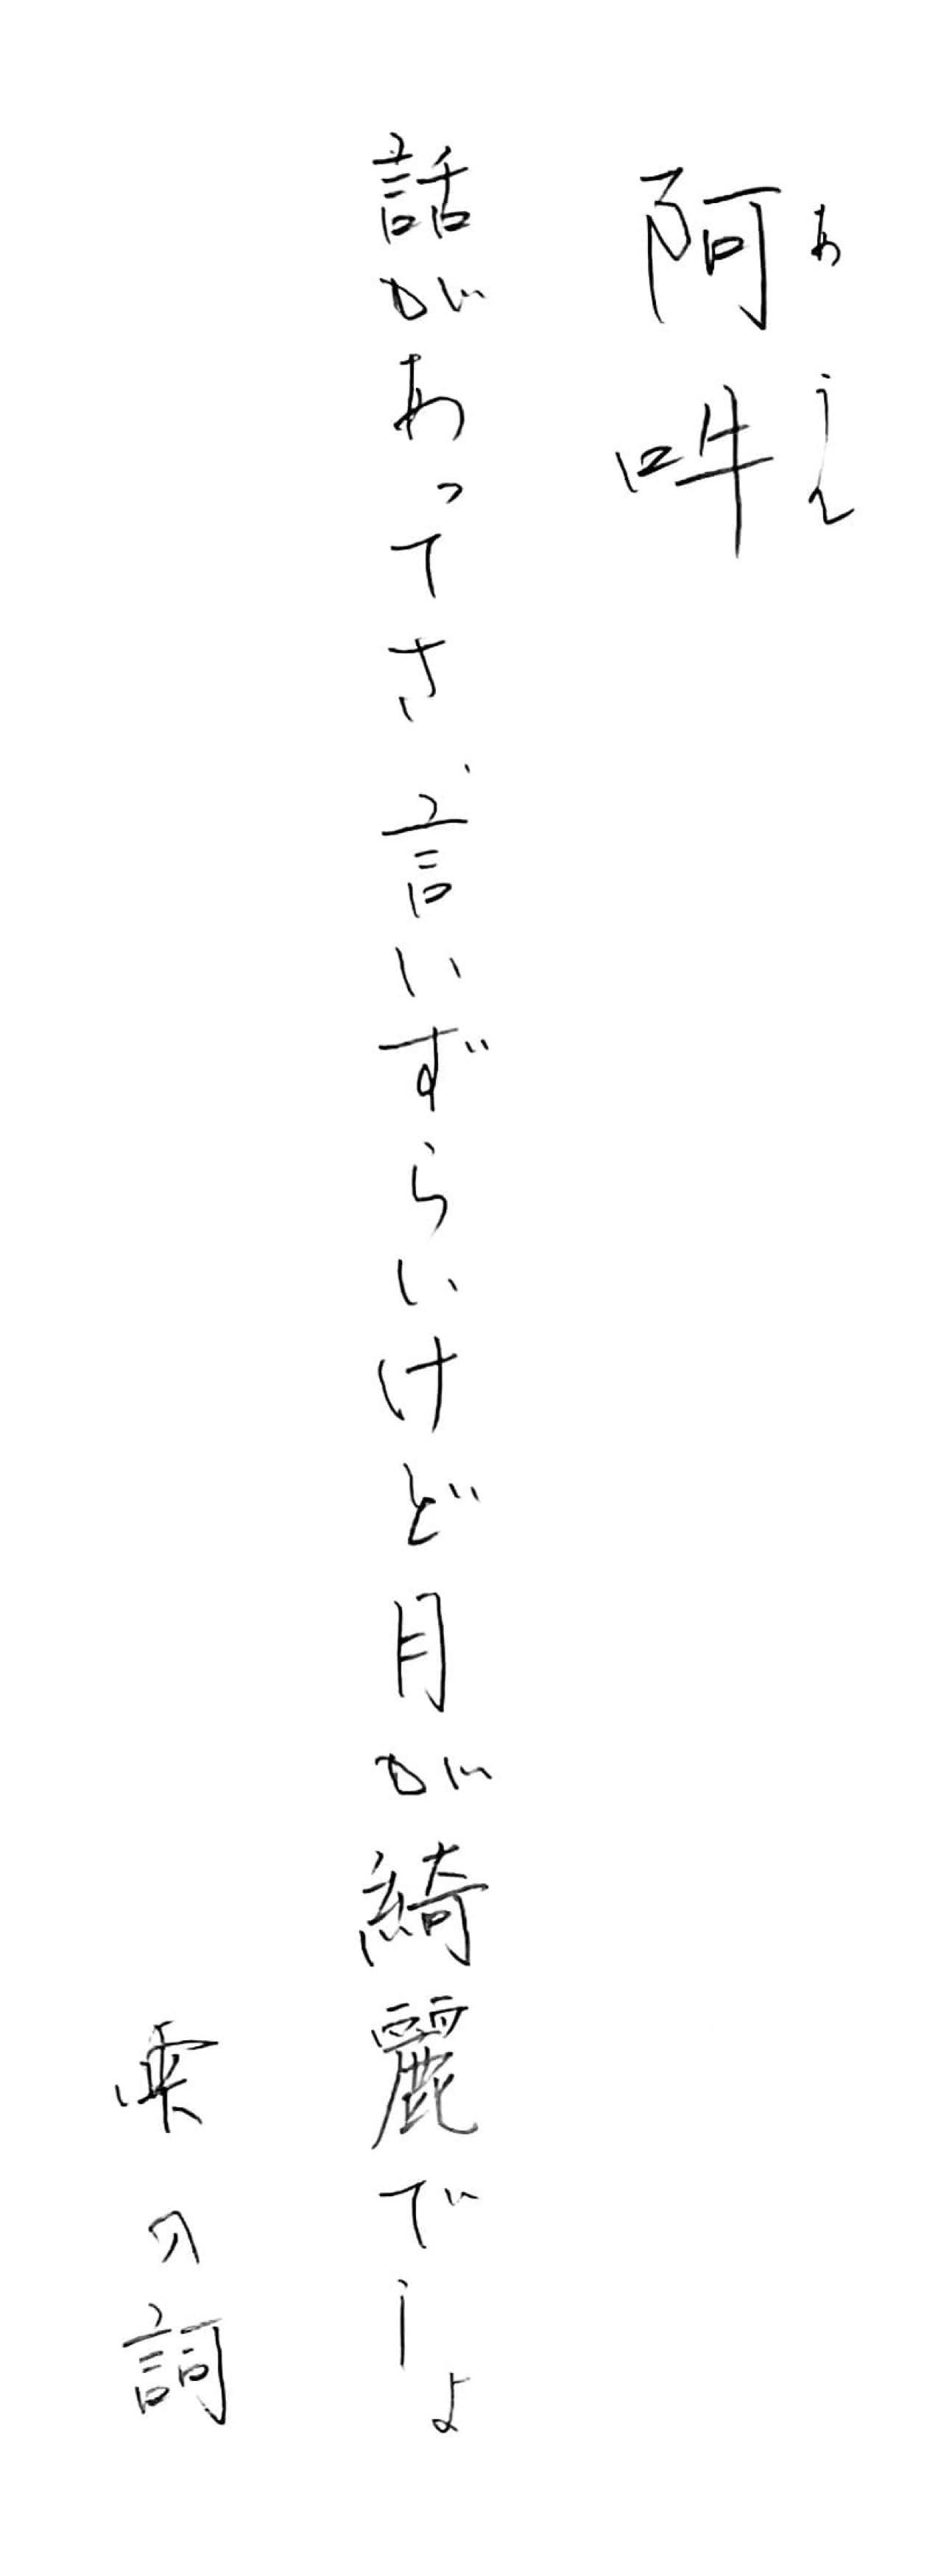 阿吽
あうん
話があってさ、言いずらいけど月が綺麗でしょ
雫の詞